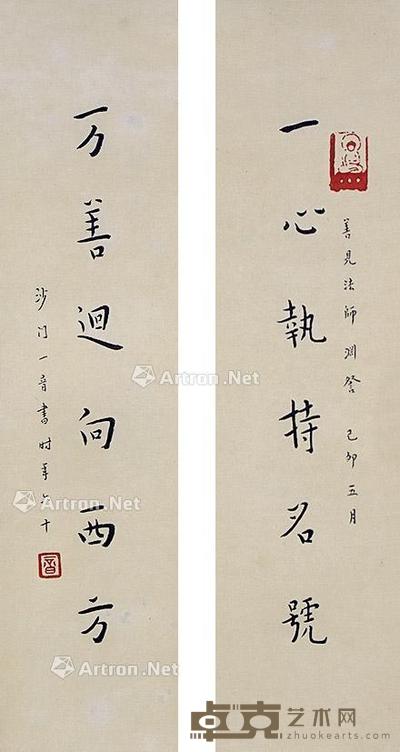 一心執持名號
善見法師淵詧 己卯五月
万善迴向西方
沙门一音書时年六十
音
Artron.Net
Artron.Net
Artron.Net
Artron.Net
卓克艺术网
zhuokearts.com